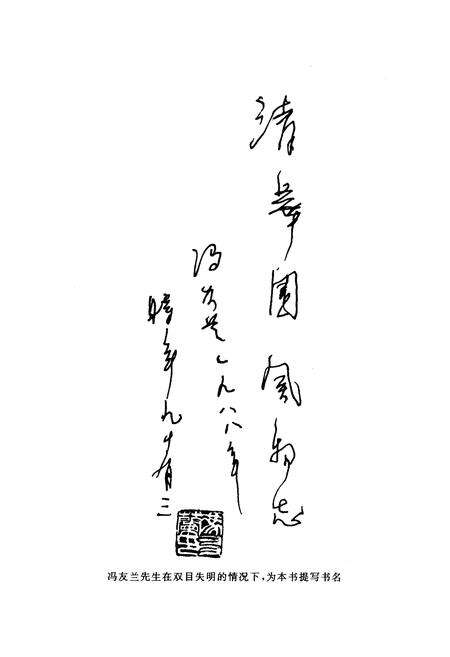 清华园风物志
冯友兰一九八八年
时年九十有三
冯友兰先生在双目失明的情况下，为本书提写书名